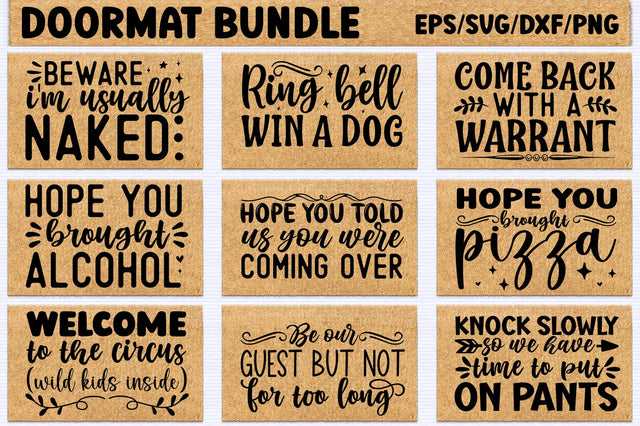 DOORMAT BUNDLE
EPS/SVG/DXF/PNG
BEWARE
i'm usually
NAKED:
Ring bell
WIN A DOG
COME BACK
WITH A
WARRANT
HOPE YOU
brought
ALCOHOL
HOPE YOU TOLD
us you were
COMING OVER
HOPE YOU
brought
pizza
WELCOME
to the circus
(wild kids inside)
Be our
GUEST BUT NOT
for too long
KNOCK SLOWLY
so we have
time to put
ON PANTS